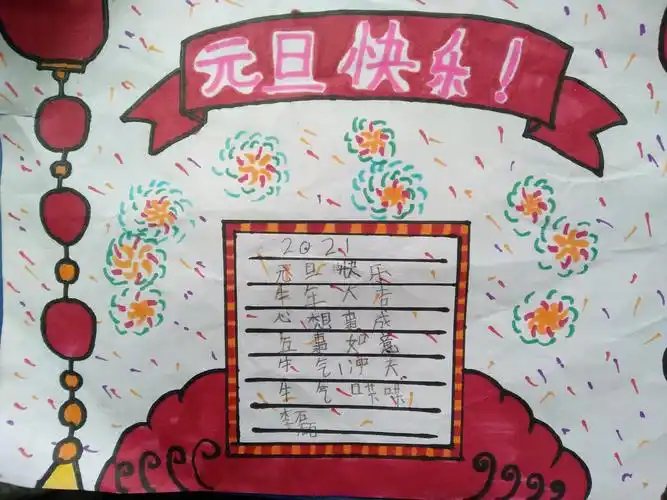 元旦快乐！
2021
元旦快乐
牛年大吉
心想事成
万事如意
牛气冲天
牛气哄哄
李磊